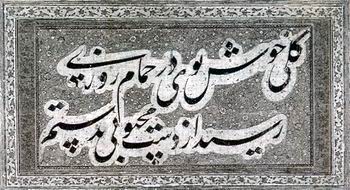 گلی خوش بوی در حمام روزی
رسید از دست محبوبی بدستم